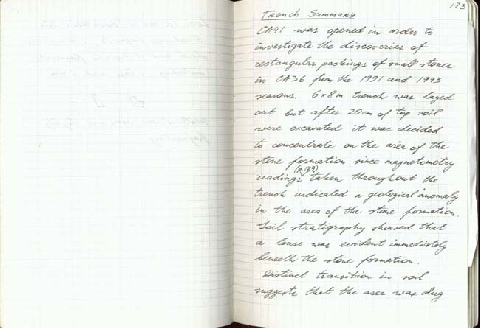 173
Trench Summary
CA91 was opened in order to
investigate the discoveries of
rectangular packings of small stones
in CA36 from the 1991 and 1993
seasons. 6x8m trench was layed
out but after 25cm of top soil
were excavated it was decided
to concentrate on the area of the
stone formation since magnetometry
readings taken throughout the
trench indicated a geological anomaly
in the area of the stone formation.
Soil stratigraphy showed that
a lense was evident immediately
beneath the stone formation.
Distinct transition in soil
suggests that the area was dug